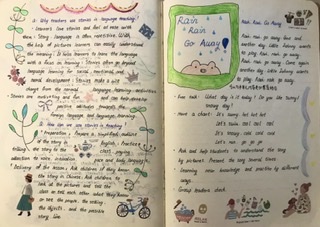 1). Why teachers use stories in language teaching?
· Learners love stories and feel at ease with
them. Story language is often repetitive. With
the help of pictures learners can easily understand
the meaning. It helps learners to learn the language
with a focus on meaning. Stories often go beyond
language learning for social, emotional, and
moral development. Stories make a
change from the normal language learning activities
· Stories are motivating and fun and can help develop
positive attitudes towards the
foreign language and language learning.
2). How can we use stories in teaching?
· Preparation: Prepare a simplified
of the story in English; Practice
telling the story to the class, paying
attention to voice, intonation, pace and body language.
· Delivery of the lesson: Ask children if they know
the story in Chinese; Ask children to
look at the pictures and tell the
class or tell each other what they know
or see the people, the setting,
the objects, and the possible
story line.
Rain
Rain
Go Away
Rain, Rain, Go Away
Rain, rain go away. Come
another day. Little Johnny wants
to play. Rain, rain go away
Rain, rain go away. Come again
another day. Little Johnny wants
to play. Rain, rain go away
· Free talk: What day is it today? Do you like Sunny/
snowy day?
· Have chant: It's sunny, hot hot hot
Let's swim, swim
It's snowy, cold cold cold
Let's go go go
· Ask and help students to understand the story
by pictures. Present the song several times
· Learning new knowledge and practice by different
ways.
· Group leaders check.